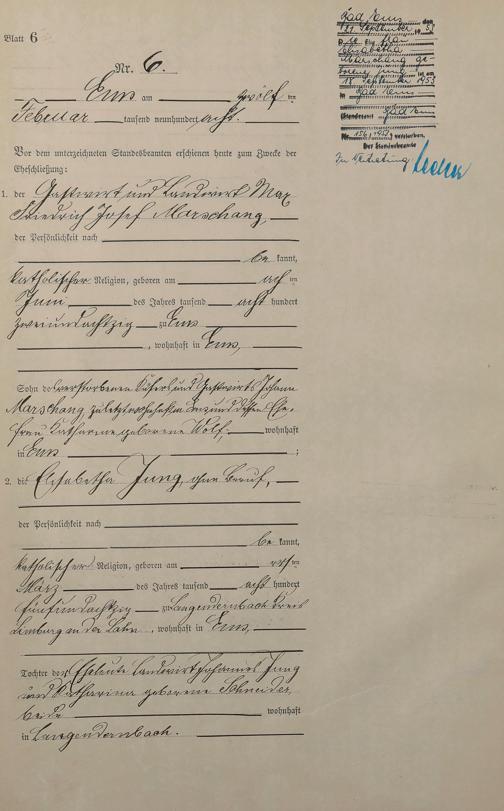 Blatt 6
Nr. 6.
Ems am zwölf ten
Februar tausend neunhundert acht.
Vor dem unterzeichneten Standesbeamten erschienen heute zum Zwecke der
Eheschließung:
1. der Gastwirt und Landwirt Max
Friedrich Josef Marschang,
der Persönlichkeit nach
be kannt,
katholischer Religion, geboren am ach ten
Juni des Jahres tausend acht hundert
zweiundachtzig zu Ems
, wohnhaft in Ems,
Sohn des verstorbenen Küfers und Gastwirts Johann
Marschang, zuletzt wohnhaft in Ems und dessen Ehe-
frau Katharina geborene Wolf, wohnhaft
in Ems ;
2. die Elisabetha Jung, ohne Beruf,
der Persönlichkeit nach
be kannt,
katholischer Religion, geboren am ten
März des Jahres tausend acht hundert
fünfundachtzig zu Langendernbach Kreis
Limburg an der Lahn, wohnhaft in Ems,
Tochter der Eheleute Landwirt Johannes Jung
und Katharina geborene Schneider,
beide wohnhaft
in Langendernbach.
Bad Ems, den
September 1953
Die Ehefrau
Elisabetha
Marschang ge-
borene Jung
ist am 18. September 1953
in Bad Ems
(Standesamt Bad Ems
Nr. 156/1953) verstorben.
Der Standesbeamte
In Vertretung